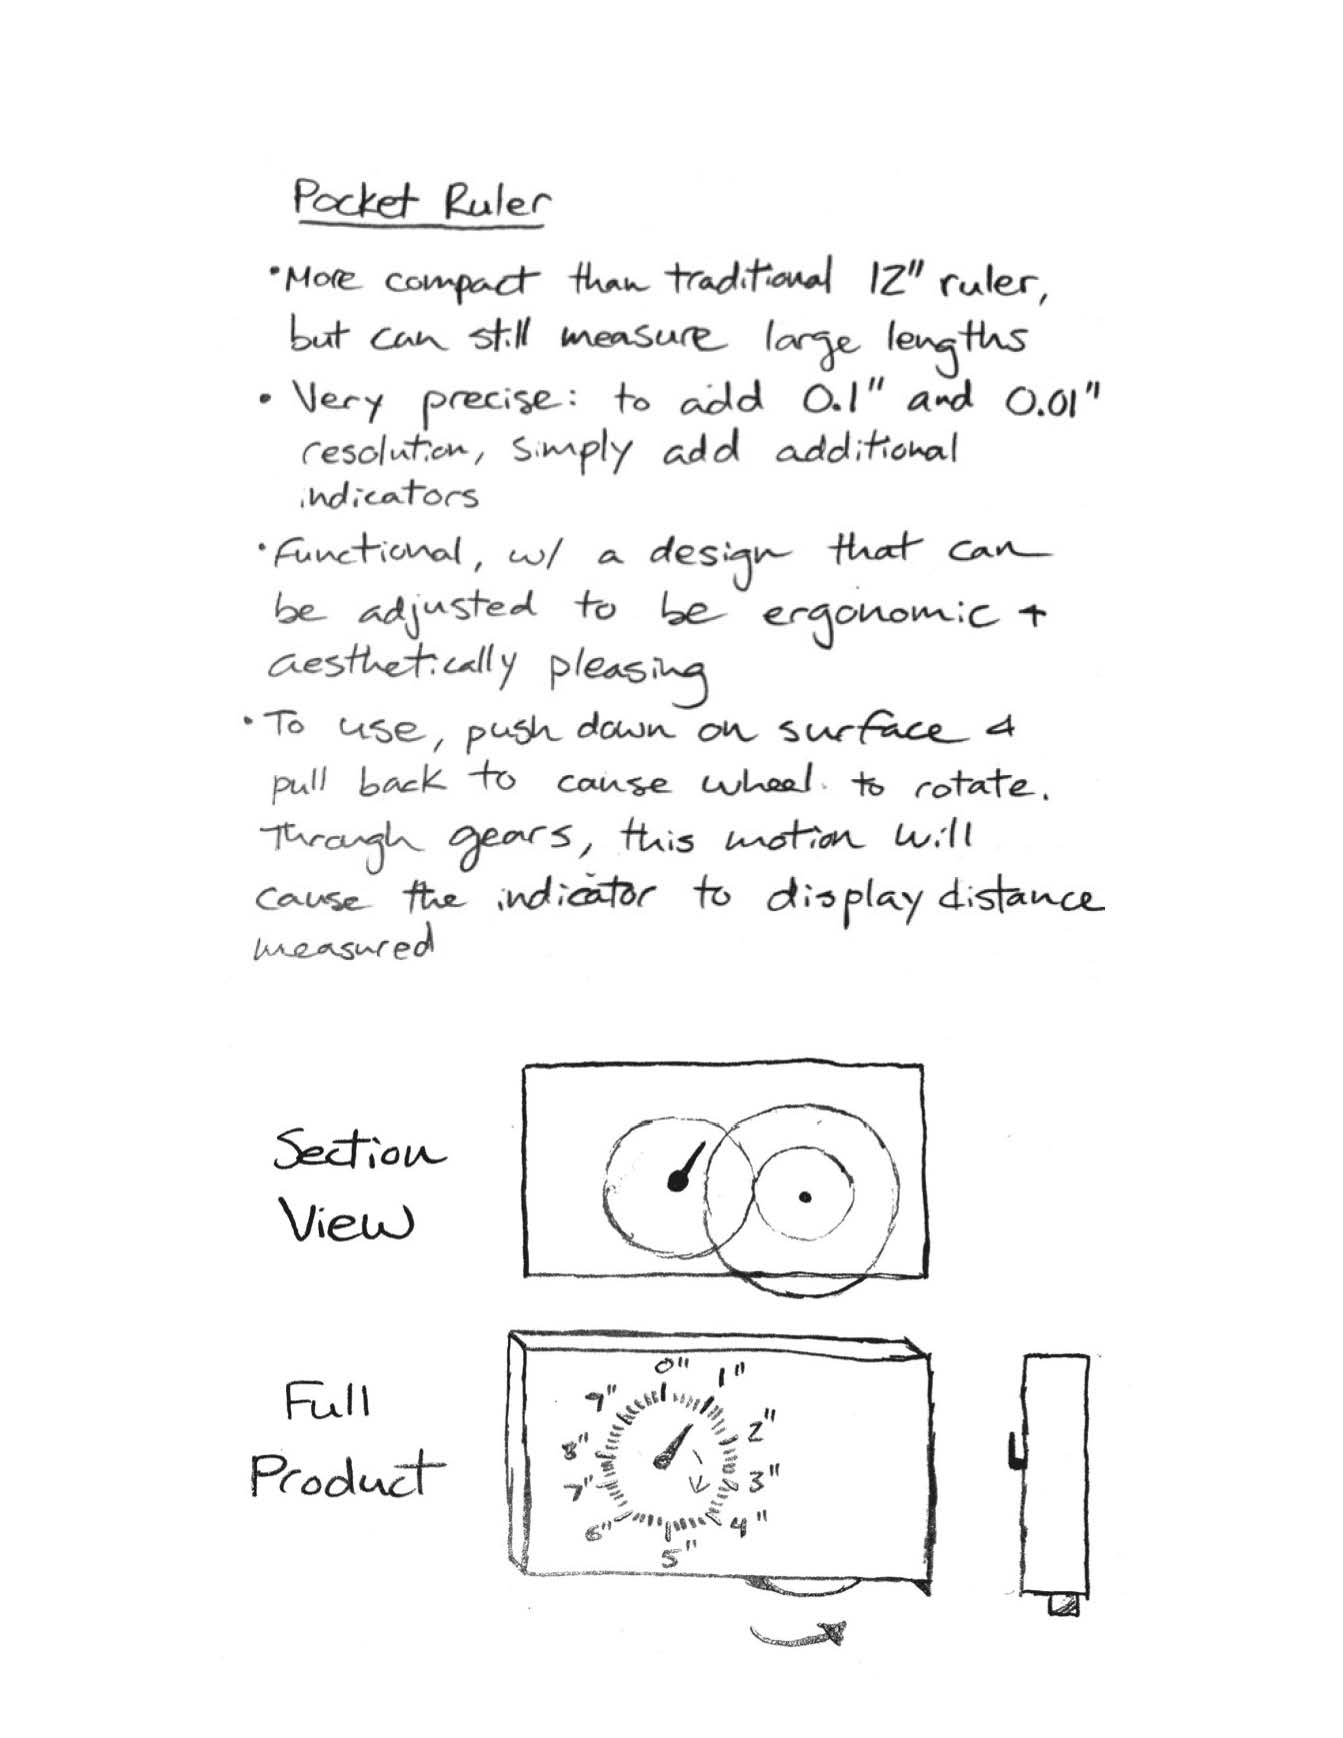 Pocket Ruler
• More compact than traditional 12" ruler,
but can still measure large lengths
• Very precise: to add 0.1" and 0.01"
resolution, simply add additional
indicators
• Functional, w/ a design that can
be adjusted to be ergonomic +
aesthetically pleasing
• To use, push down on surface &
pull back to cause wheel to rotate.
Through gears, this motion will
cause the indicator to display distance
measured
Section
View
Full
Product
0"
1"
2"
3"
4"
5"
6"
7"
8"
9"